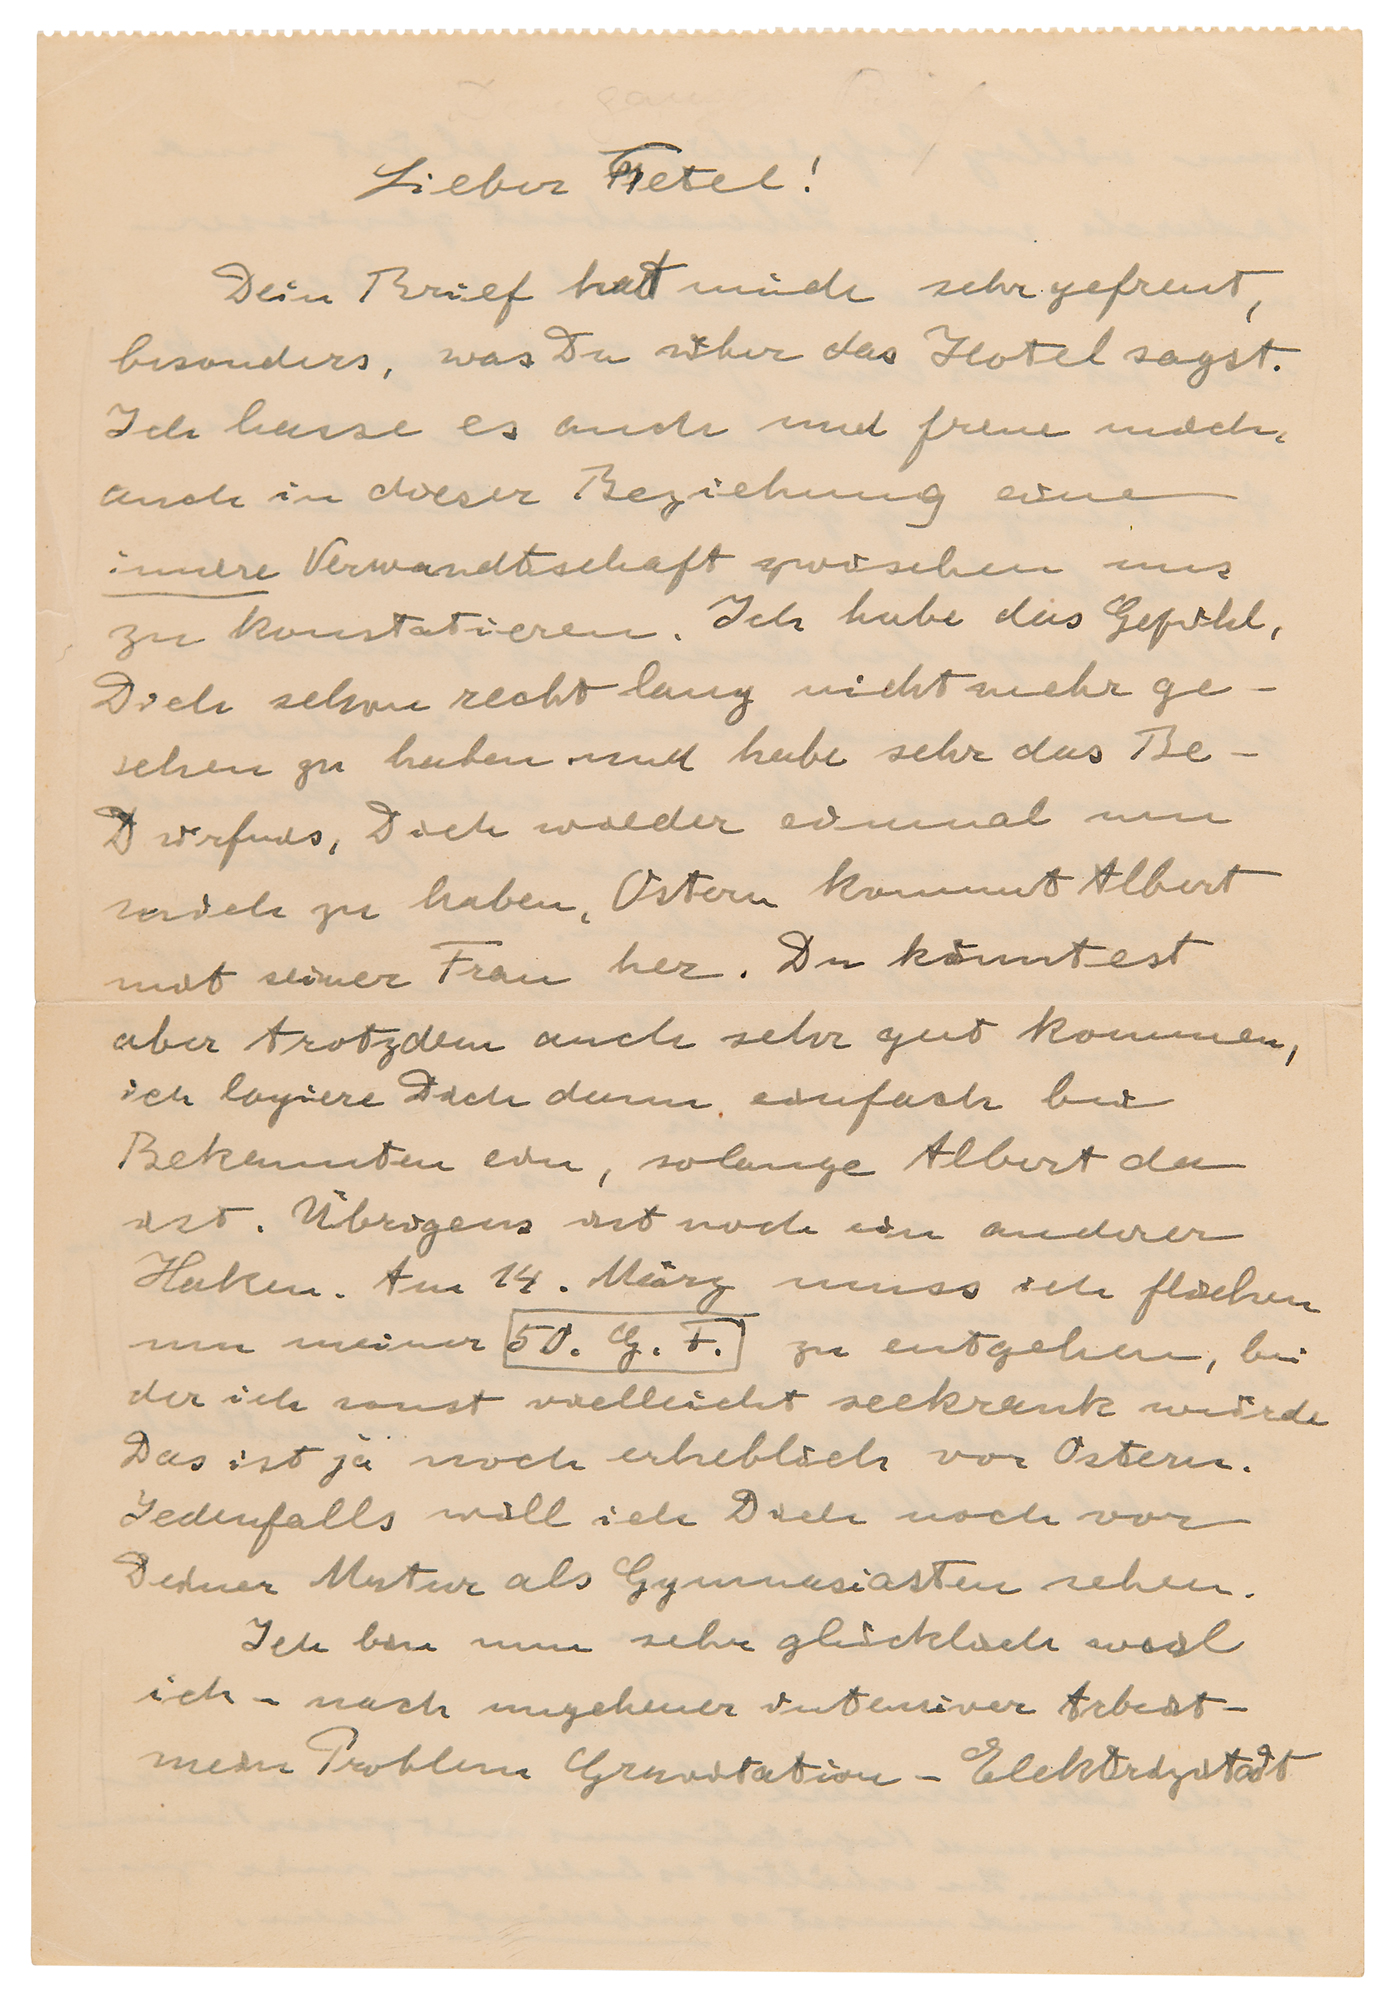 Lieber Tetel!
Dein Brief hat mich sehr gefreut,
besonders, was Du über das Hotel sagst.
Ich hasse es auch und freue mich,
auch in dieser Beziehung eine
innere Verwandtschaft zwischen uns
zu konstatieren. Ich habe das Gefühl,
Dich schon recht lang nicht mehr ge-
sehen zu haben und habe sehr das Be-
dürfnis, Dich wieder einmal um
mich zu haben. Ostern kommt Albert
mit seiner Frau her. Du könntest
aber trotzdem auch sehr gut kommen,
ich logiere Dich dann einfach bei
Bekannten ein, solange Albert da
ist. Übrigens ist noch ein anderer
Haken. Am 14. März muss ich fliehen
um meiner 50. G. F. zu entgehen, bei
der ich sonst vielleicht seekrank würde
Das ist ja noch erheblich vor Ostern.
Jedenfalls will ich Dich noch vor
Deiner Matur als Gymnasiasten sehen.
Ich bin nun sehr glücklich weil
ich - nach ungeheuer intensiver Arbeit -
mein Problem Gravitation - Elektrizität